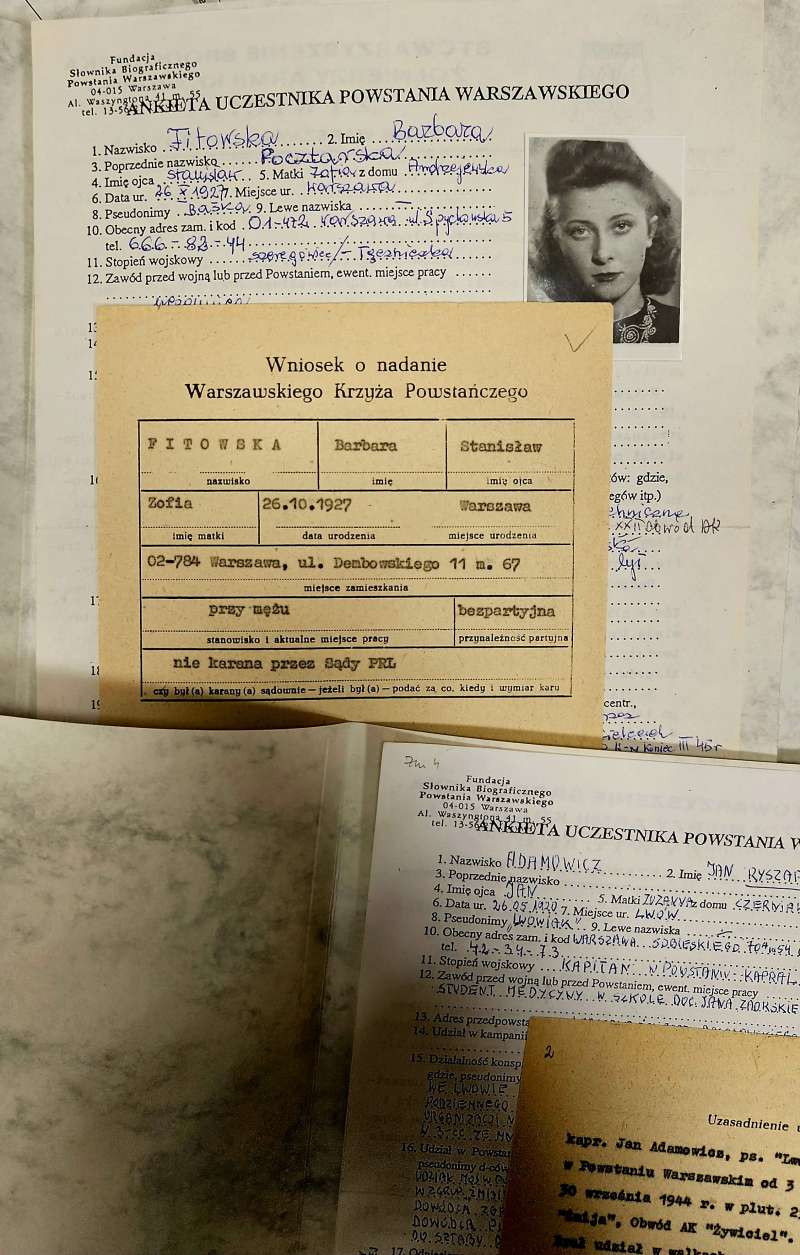 Fundacja
Słownika Biograficznego
Powstania Warszawskiego
04-015 Warszawa
Al. Waszyngtona 41 m. 55
tel. 13-56
ANKIETA UCZESTNIKA POWSTANIA WARSZAWSKIEGO
1. Nazwisko Fitowska 2. Imię Barbara
3. Poprzednie nazwisko Pocztarska
4. Imię ojca Stanisław 5. Matki Zofia z domu Andrzejewska
6. Data ur. 26 X 1927 7. Miejsce ur. Warszawa
8. Pseudonimy Baśka 9. Lewe nazwiska —
10. Obecny adres zam. i kod 01-472 Warszawa ul. Spychowska 5
tel. 666-82-44
11. Stopień wojskowy szeregowiec/-Łączniczka
12. Zawód przed wojną lub przed Powstaniem, ewent. miejsce pracy
13
14
15
Wniosek o nadanie
Warszawskiego Krzyża Powstańczego
FITOWSKA Barbara Stanisław
nazwisko imię imię ojca
Zofia 26.10.1927 Warszawa
imię matki data urodzenia miejsce urodzenia
02-784 Warszawa, ul. Dembowskiego 11 m. 67
miejsce zamieszkania
przy mężu bezpartyjna
stanowisko i aktualne miejsce pracy przynależność partyjna
nie karana przez Sądy PRL
czy był(a) karany(a) sądownie — jeżeli był(a) — podać za co, kiedy i wymiar karu
16
ów: gdzie,
egów itp.)
XXII Obwód AK
17
18
19
centr.,
koniec III 45r
Fundacja
Słownika Biograficznego
Powstania Warszawskiego
04-015 Warszawa
Al. Waszyngtona 41 m. 55
tel. 13-56
ANKIETA UCZESTNIKA POWSTANIA W
1. Nazwisko ADAMOWICZ 2. Imię JAN RYSZAR
3. Poprzednie nazwisko
4. Imię ojca JAN 5. Matki ZUZANNA z domu CZERNIA
6. Data ur. 26.05.1920 7. Miejsce ur. LWÓW
8. Pseudonimy "LWOWIAK" 9. Lewe nazwiska —
10. Obecny adres zam. i kod WARSZAWA SOBIESKIEGO
tel. 42-34-73
11. Stopień wojskowy KAPITAN W POWSTANIU: KAPRAL
12. Zawód przed wojną lub przed Powstaniem, ewent. miejsce pracy
STUDENT MEDYCYNY W SZKOLE DOC. JANA ZAORSKIE
13. Adres przedpowsta
14. Udział w kampanii
15. Działalność konsp
gdzie, pseudonimy
WE LWOWIE
PODZIEMNEGO
16. Udział w Powstan
pseudonimy d-ców
DO SZTABU
2
Uzasadnienie
kapr. Jan Adamowicz, ps. "Lw
w Powstaniu Warszawskim od 3
30 września 1944 r. w plut. 2
"Żmija", Obwód AK "Żywiciel".
Brał udział w walkach